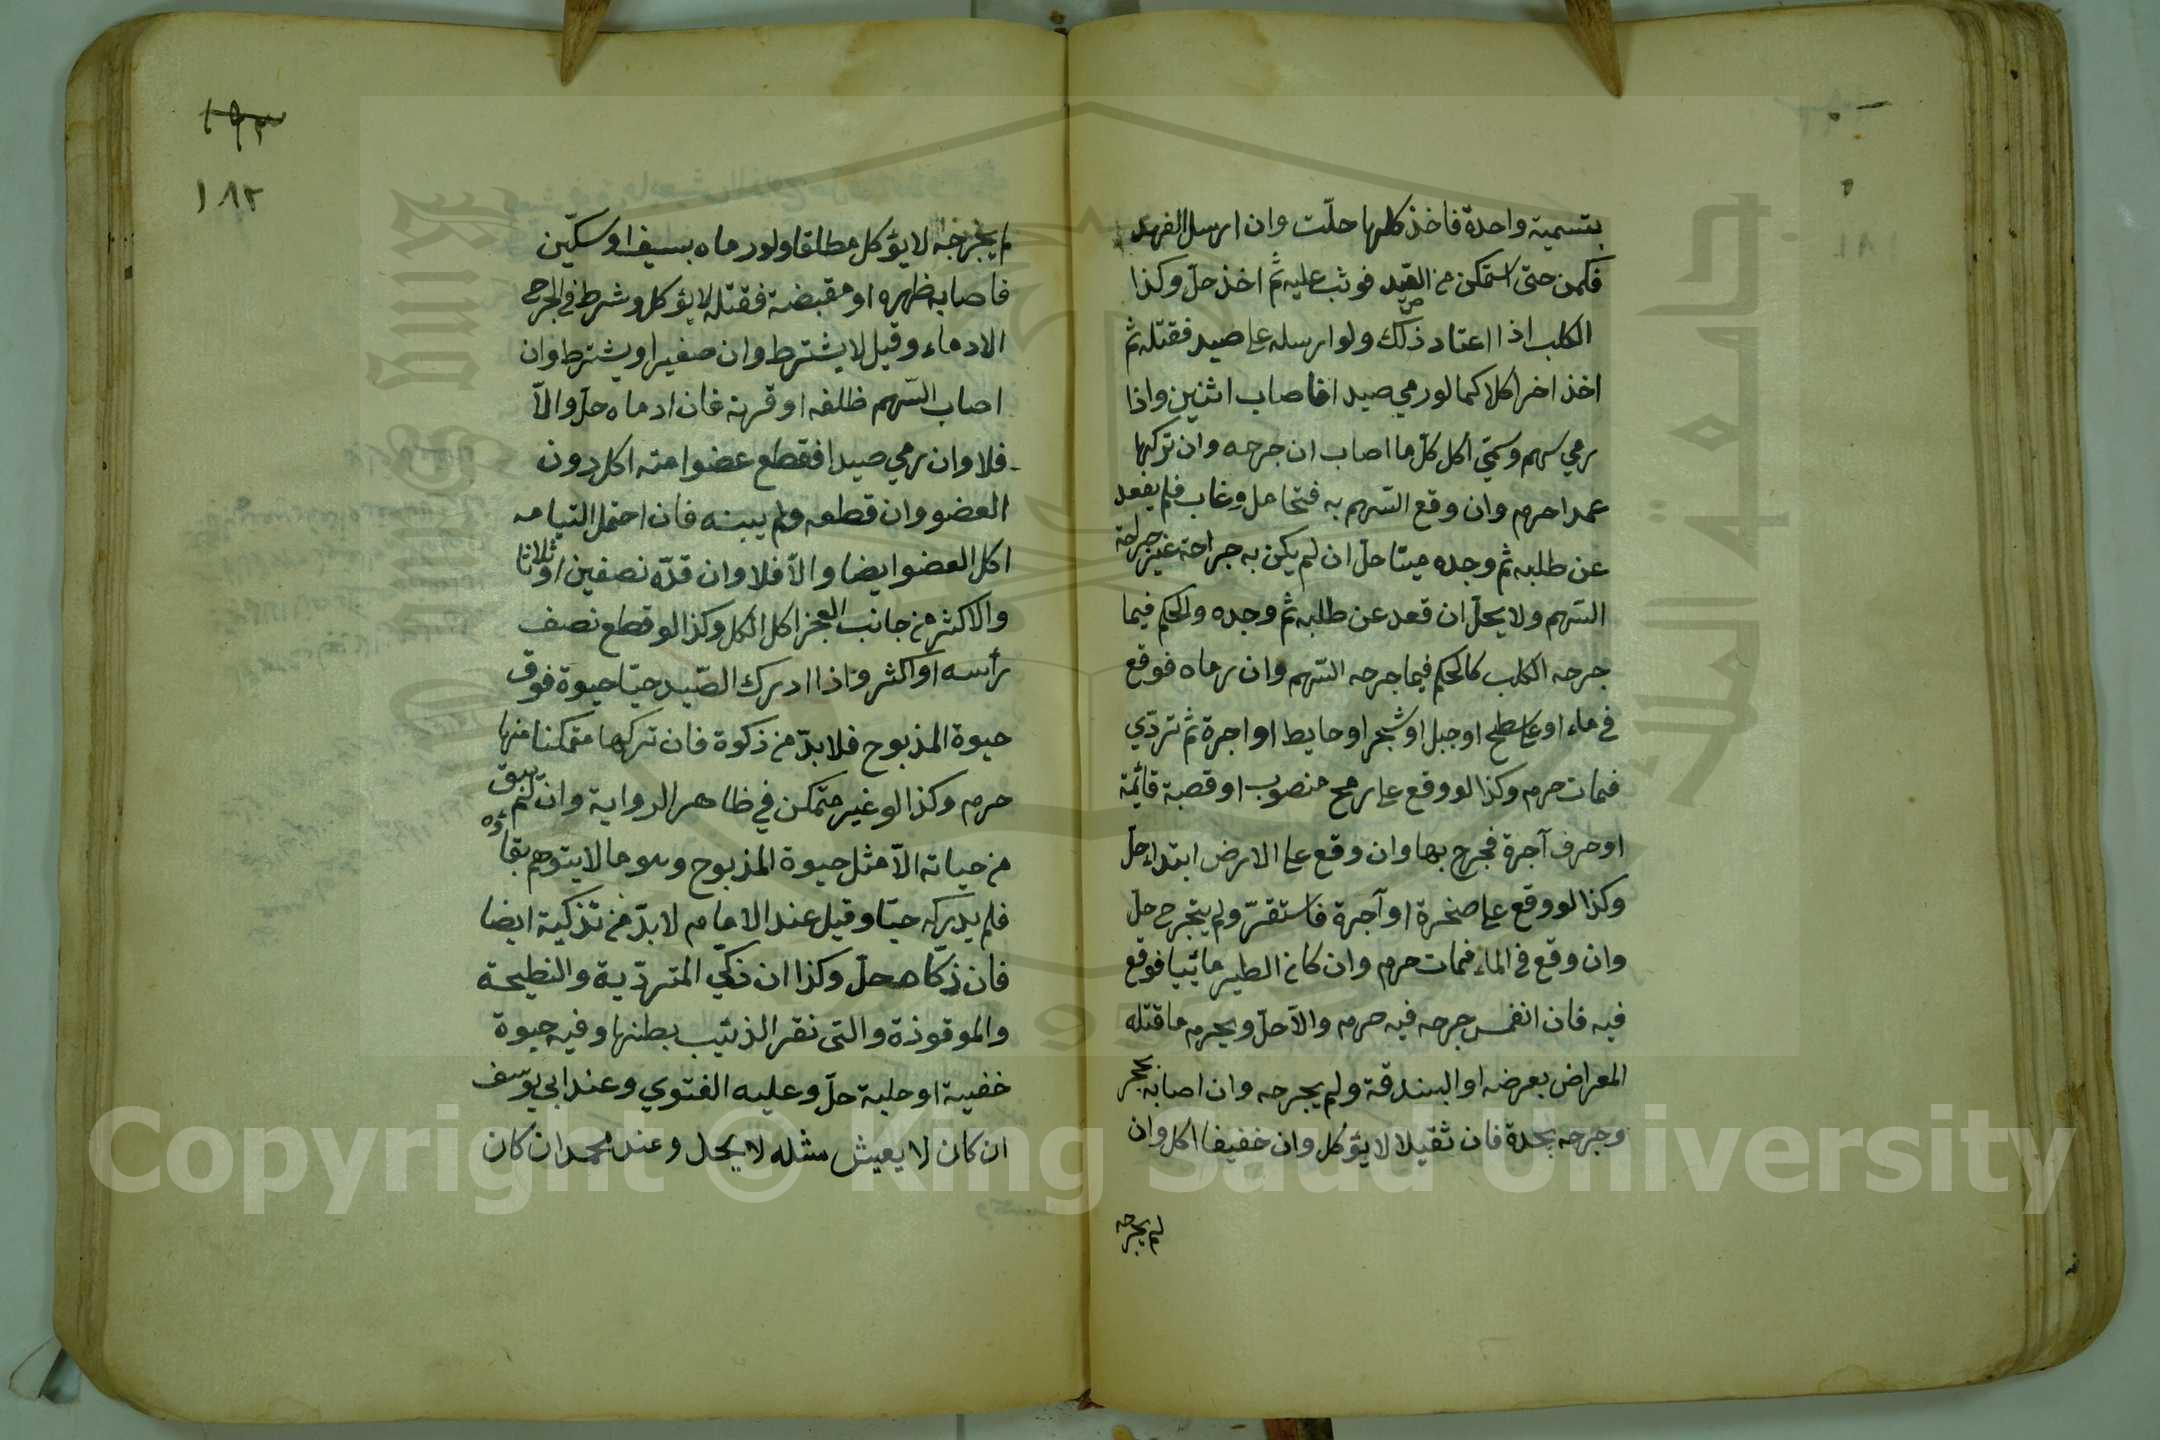 بتسمية واحدة فاخذ كلها حلّت وان ارسل الفهد
فكمن حتى استمكن من الصيد فوثب عليه ثم اخذ حلّ وكذا
الكلب اذا اعتاد ذلك ولو ارسله على صيد فقتله ثم
اخذ اخر اكلا كما لو رمي صيدا فاصاب اثنين واذا
رمي سهم وسمّي اكل كلّ ما اصاب ان جرحه وان تركها
عمدا حرم وان وقع السّهم به فتحامل وغاب فلم يقعد
عن طلبه ثم وجده ميتا حلّ ان لم يكن به جراحة غير جراحة
السّهم ولا يحلّ ان قعد عن طلبه ثم وجده والحكم فيما
جرحه الكلب كالحكم فيما جرحه السّهم وان رماه فوقع
في ماء او على سطح او جبل او شجر او حايط او اجرة ثم تردّي
فمات حرم وكذا لو وقع على رمح منصوب او قصبة قائمة
او حرف آجرة فجرح بها وان وقع على الارض ابتداء حلّ
وكذا لو وقع على صخرة او آجرة فاستقرّ ولم يتجرح حلّ
وان وقع في الماء فمات حرم وان كان الطير مائيا فوقع
فيه فان انغمس جرحه فيه حرم والاّ حلّ ويحرم ما قتله
المعراض بعرضه او البندقة ولم يجرحه وان اصابه بحجر
وجرحه بحدة فان ثقيلا لا يؤكل وان خفيفا اكل وان
لم يجرحه
١٩٣
١٨٢
لم يجرحه لا يؤكل مطلقا ولو رماه بسيف او سكّين
فاصابه ظهره او مقبضة فقتله لا يؤكل وشرط في الجرح
الادماء وقيل لا يشترط وان صغيرا ويشترط وان
اصاب السّهم ظلفه او قرنه فان ادماه حلّ والاّ
فلا وان رمي صيدا فقطع عضوا منه اكل دون
العضو وان قطعه ولم يبنه فان احتمل التيامه
اكل العضو ايضا والاّ فلا وان قدّه نصفين او ثلاثا
والاكثر من جانب العجز اكل الكل وكذا لو قطع نصف
رأسه او اكثر واذا ادرك الصّيد حيّا حيوة فوق
حيوة المذبوح فلا بدّ من ذكوة فان تركها متمكنا منها
حرم وكذا لو غير متمكن في ظاهر الرواية وان لم يبق
من حياته الاّ مثل حيوة المذبوح وهو ما لا يتوهم بقاؤه
فلم يدركه حيّا وقيل عند الامام لا بدّ من تذكية ايضا
فان ذكّاه حلّ وكذا ان ذكّي المتردّية والنطيحة
والموقوذة والتى نقر الذئيب بطنها وفيه حيوة
خفيية او جلية حلّ وعليه الفتوي وعند ابي يوسف
ان كان لا يعيش مثله لا يحل وعند محمد ان كان
Copyright © King Saud University
King Saud University
جامعة الملك سعود
1957